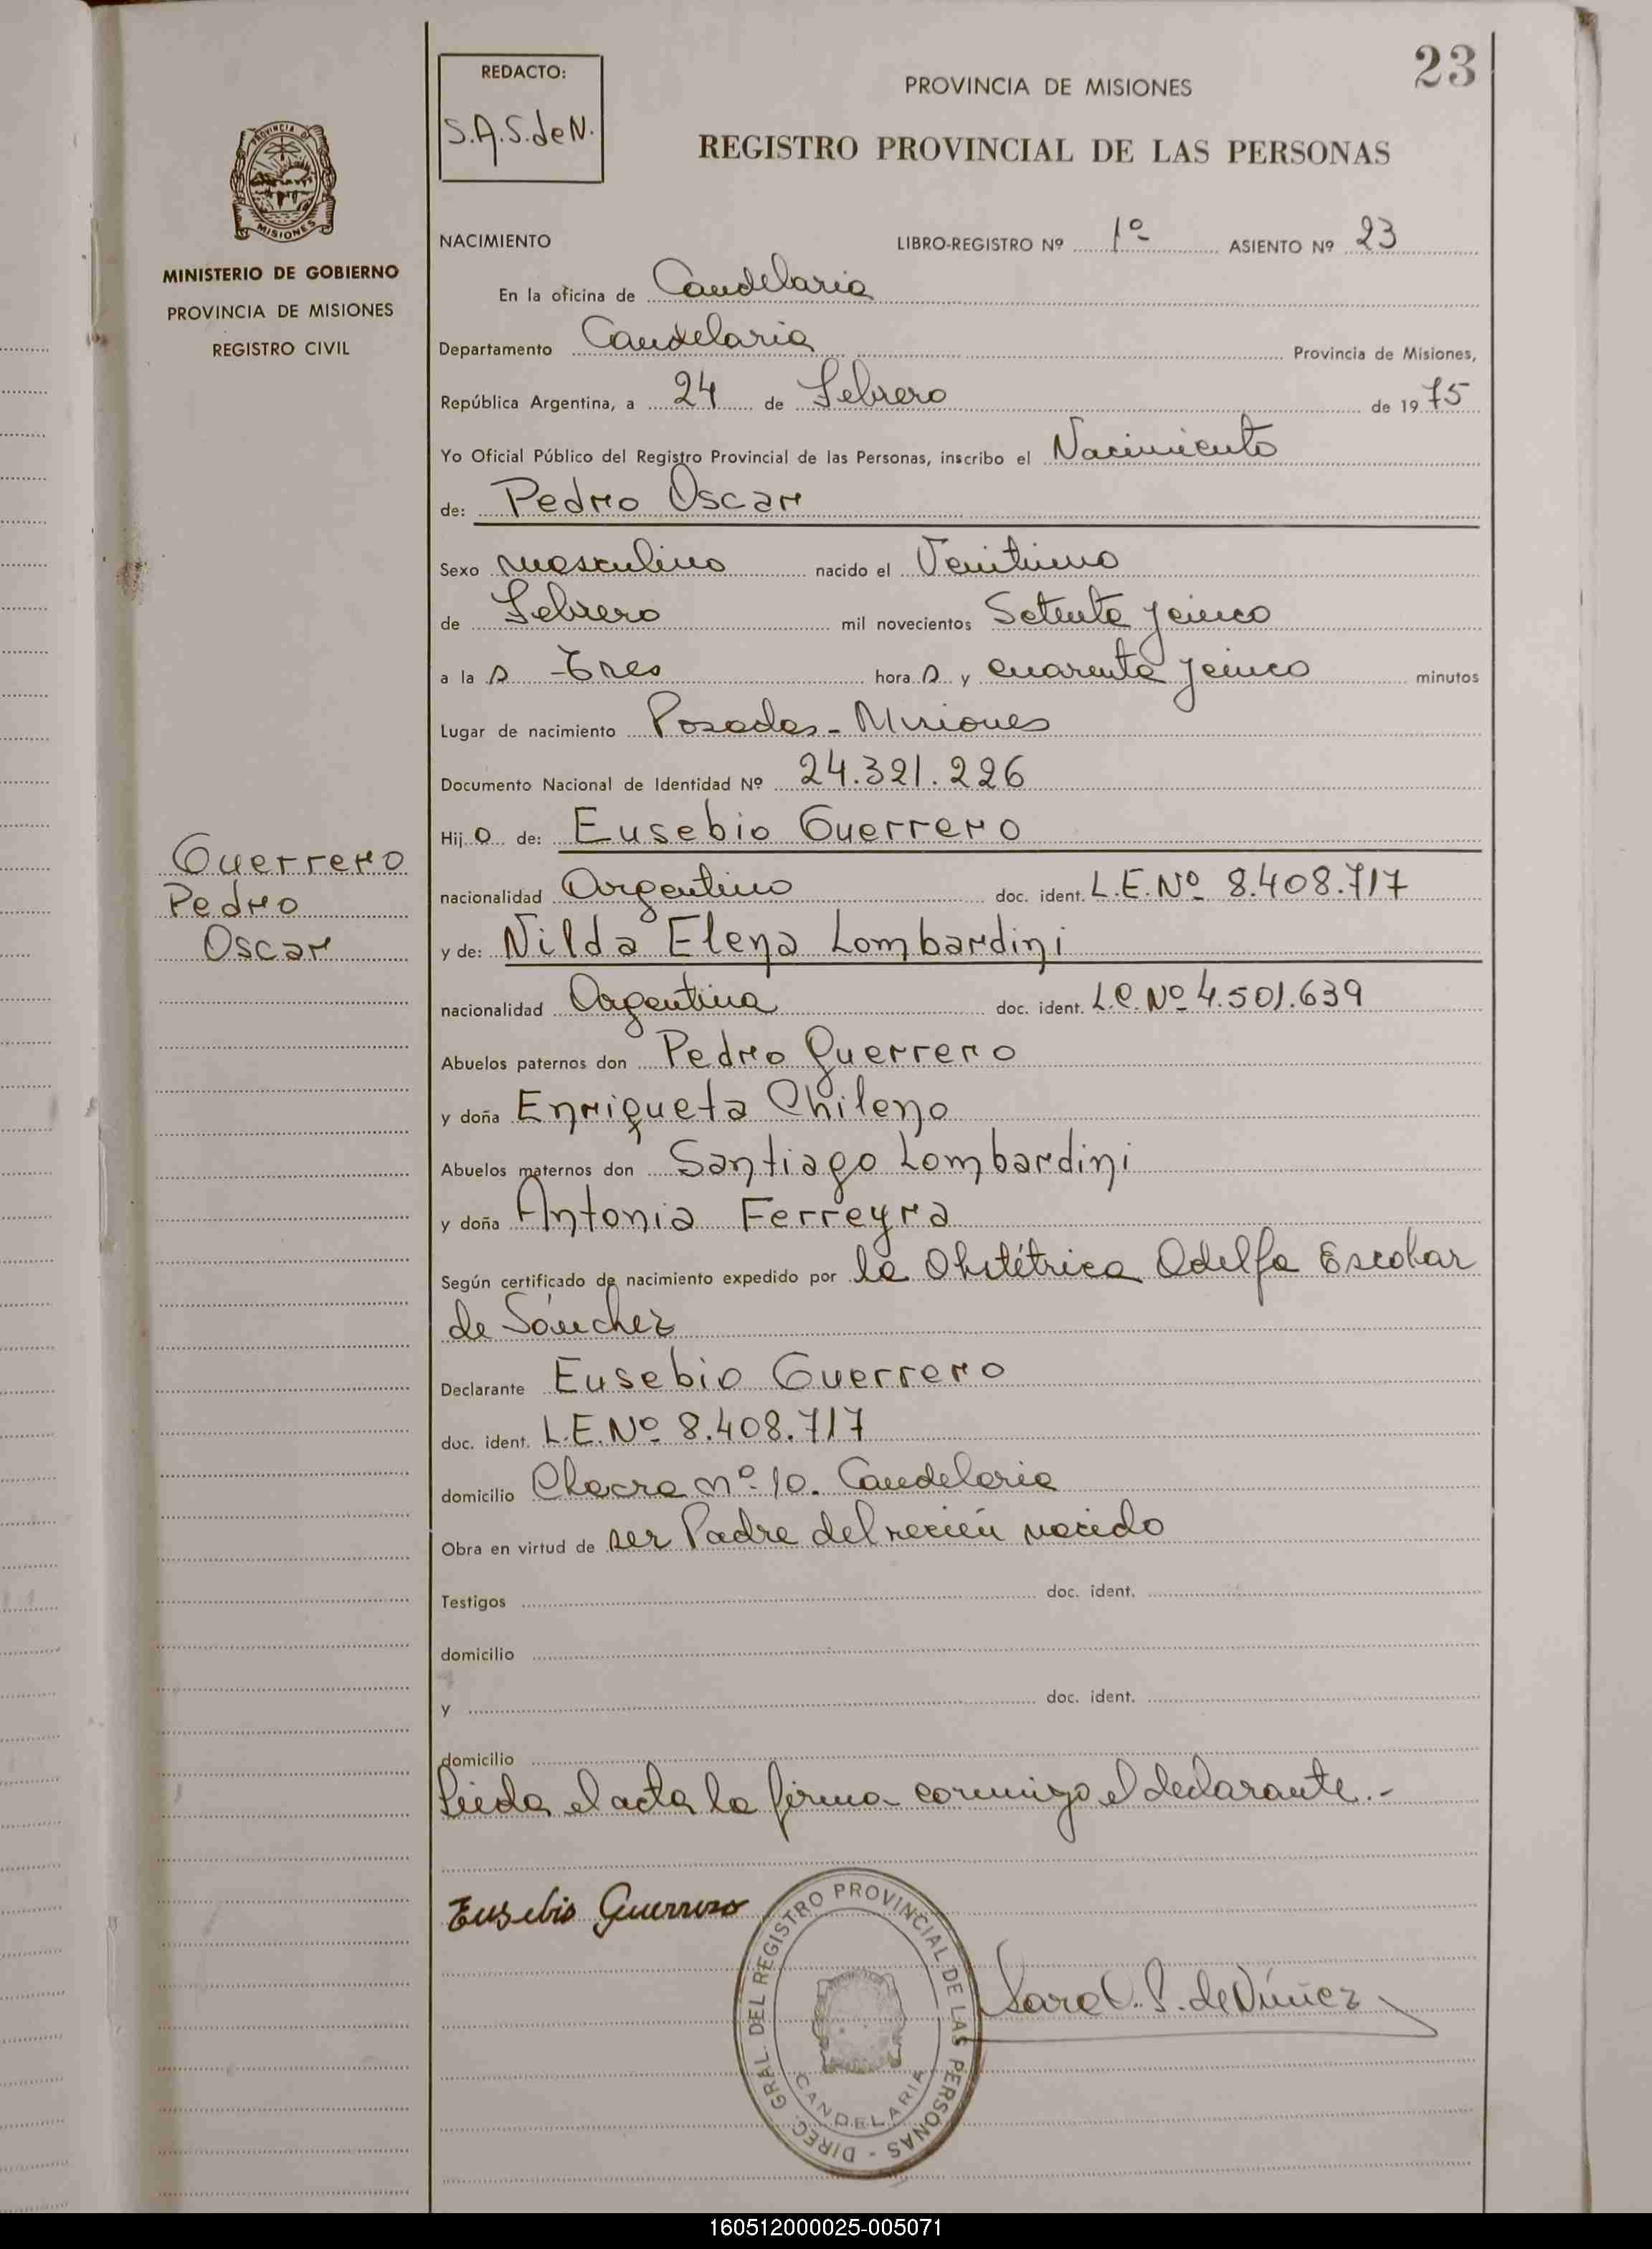 23
REDACTO:
S.A.S.deN.
PROVINCIA DE MISIONES
REGISTRO PROVINCIAL DE LAS PERSONAS
PROVINCIA DE
MISIONES
MINISTERIO DE GOBIERNO
PROVINCIA DE MISIONES
REGISTRO CIVIL
NACIMIENTO LIBRO-REGISTRO Nº 1º ASIENTO Nº 23
En la oficina de Candelaria
Departamento Candelaria Provincia de Misiones,
República Argentina, a 24 de Febrero de 1975
Yo Oficial Público del Registro Provincial de las Personas, inscribo el Nacimiento
de: Pedro Oscar
Sexo masculino nacido el Veintiuno
de Febrero mil novecientos Setenta y cinco
a la s Tres hora s y cuarenta y cinco minutos
Lugar de nacimiento Posadas - Misiones
Documento Nacional de Identidad Nº 24.321.226
Hij o de: Eusebio Guerrero
Guerrero
Pedro
Oscar
nacionalidad Argentino doc. ident. L.E. Nº 8.408.717
y de: Nilda Elena Lombardini
nacionalidad Argentina doc. ident. L.C. Nº 4.501.639
Abuelos paternos don Pedro Guerrero
y doña Enriqueta Chileno
Abuelos maternos don Santiago Lombardini
y doña Antonia Ferreyra
Según certificado de nacimiento expedido por la Obstétrica Odelfa Escobar
de Sánchez
Declarante Eusebio Guerrero
doc. ident. L.E. Nº 8.408.717
domicilio Chacra nº 10. Candelaria
Obra en virtud de ser Padre del recién nacido
Testigos doc. ident.
domicilio
y doc. ident.
domicilio
Leída el acta la firma conmigo el declarante.-
Eusebio Guerrero
DIREC. GRAL. DEL REGISTRO PROVINCIAL DE LAS PERSONAS -
CANDELARIA
Sara A. S. de Núñez
160512000025-005071